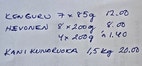 KENGURU 7 x 85g 12.00
HEVONEN 8 x 200g 8.00
4 x 200g à 1.40
KANI KUIVARUOKA 1,5 kg 20.00